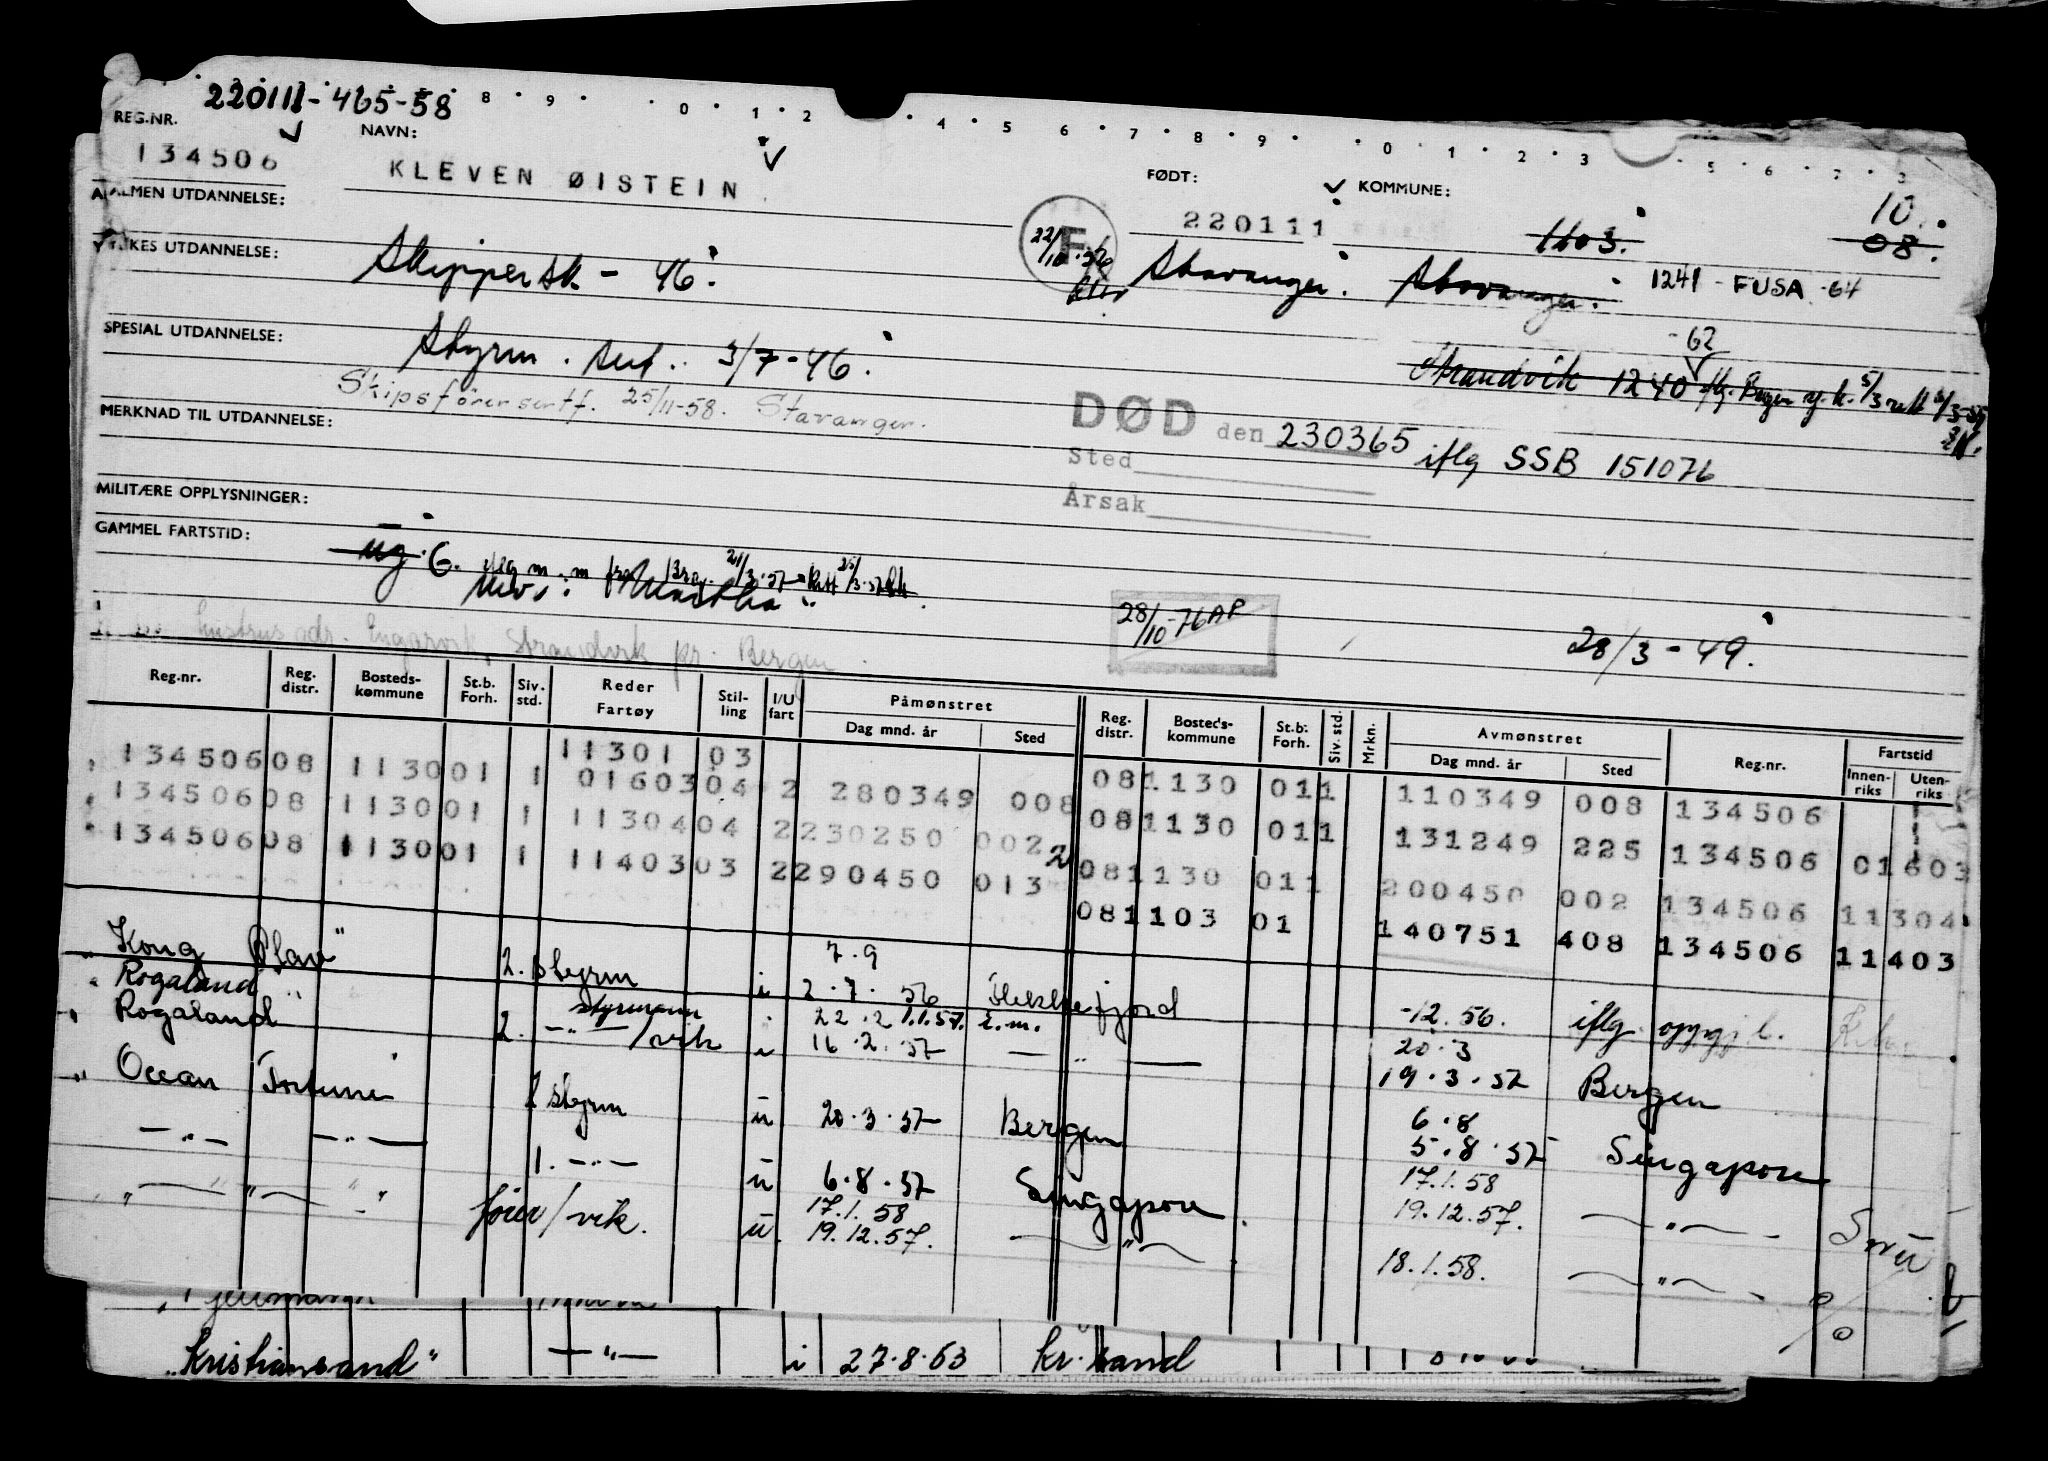 220111-465-58
8 9 0 1 2 4 5 6 7 8 9 0 1 2 3 5 6 7
REG.NR. NAVN: FØDT: KOMMUNE:
134506 KLEVEN ØISTEIN 220111 1103. 10.
08.
ALMEN UTDANNELSE:
YRKES UTDANNELSE: Skippersk - 46. F 22/10.56 Stavanger. Stavanger. 1241 - FUSA -64
SPESIAL UTDANNELSE: Styrm. sert. 3/7-46. -62
Strandvik 1240
Skipsförersertf. 25/11-58. Stavanger.
MERKNAD TIL UTDANNELSE: DØD den 230365 iflg SSB 151076
Sted
Årsak
MILITÆRE OPPLYSNINGER: -
GAMMEL FARTSTID: ug. G.
28/10-76 AP 28/3-49.
hustrus adr. Engavik, Strandvik pr. Bergen.
Reg.nr. Reg. distr. Bosteds-kommune St.b. Forh. Siv. std. Reder Fartøy Stil-ling I/U fart Påmønstret Dag mnd. år Sted Reg. distr. Bosteds-kommune St.b. Forh. Siv. std. Mrkn. Avmønstret Dag mnd. år Sted Reg.nr. Fartstid Innen-riks Uten-riks
11301 03
134506 08 1130 01 1 01603 04 2 280349 008 08 1130 01 1 110349 008 134506
134506 08 1130 01 1 11304 04 2 230250 002 08 1130 01 1 131249 225 134506 01603
134506 08 1130 01 1 11403 03 2 290450 013 08 1130 01 1 200450 002 134506 11304
08 1103 01 140751 408 134506 11403
"Kong Olav" 2. styrm i 7.9
2.7.56 Flekkefjord -12.56. iflg.
"Rogaland" styrmann 22.2 1.1.57. r.m. 20.3
"Rogaland 2. -"- /vik i 16.2.57 -"- 19.3.57 Bergen
"Ocean Fortune 2 styrm u 20.3.57 Bergen 6.8
5.8.57 Singapore
-"- -"- 1. -"- u 6.8.57 Singapore. 17.1.58
19.12.57. -"-
-"- fører/vik. u. 17.1.58
19.12.57. -"- 18.1.58. -"-
"Kristiansand" -"- i 27.8.63 Kr.sand